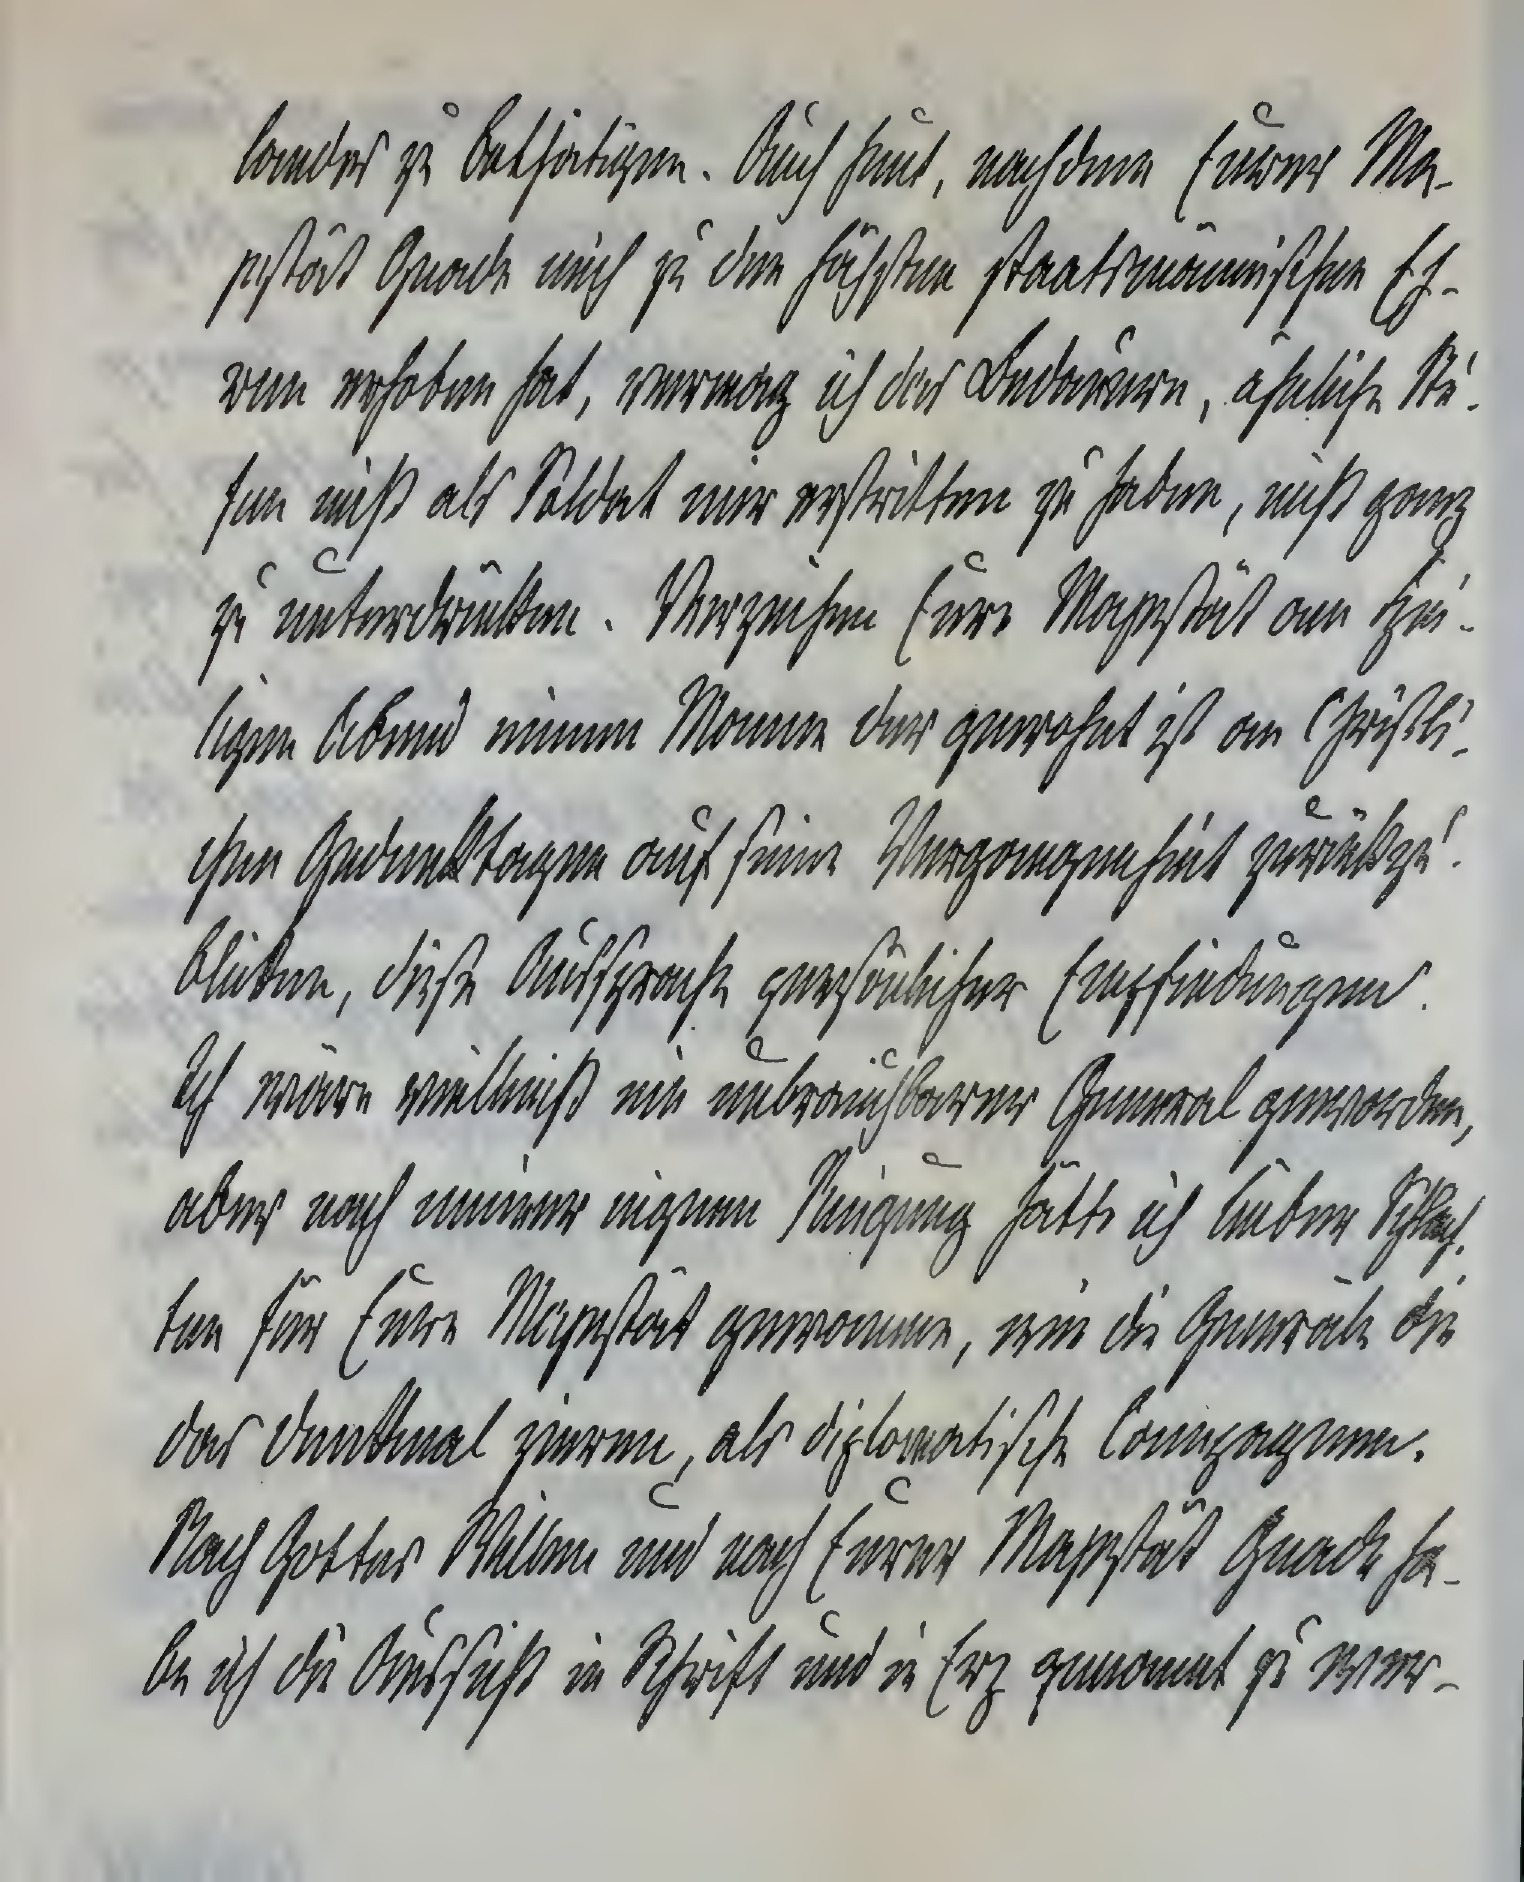 landes zu bethätigen. Auch heut, nachdem Eurer Ma-
jestät Gnade mich zu den höchsten staatsmännischen Eh-
ren erhoben hat, vermag ich das Bedauern, ähnliche Stu-
fen nicht als Soldat mir erstritten zu haben, nicht ganz
zu unterdrücken. Verzeihen Eure Majestät am Hei-
ligen Abend einem Manne der gewohnt ist an Christli-
chen Gedenktagen auf seine Vergangenheit zurückzu-
blicken, diese Aussprache persönlicher Empfindungen.
Ich wäre vielleicht ein unbrauchbarer General geworden,
aber nach meiner eignen Neigung hätte ich lieber Schlach-
ten für Eure Majestät gewonnen, wie die Generäle die
das Denkmal zieren, als diplomatische Campagnen.
Nach Gottes Willen und nach Eurer Majestät Gnade ha-
be ich die Aussicht in Schrift und in Erz genannt zu wer-